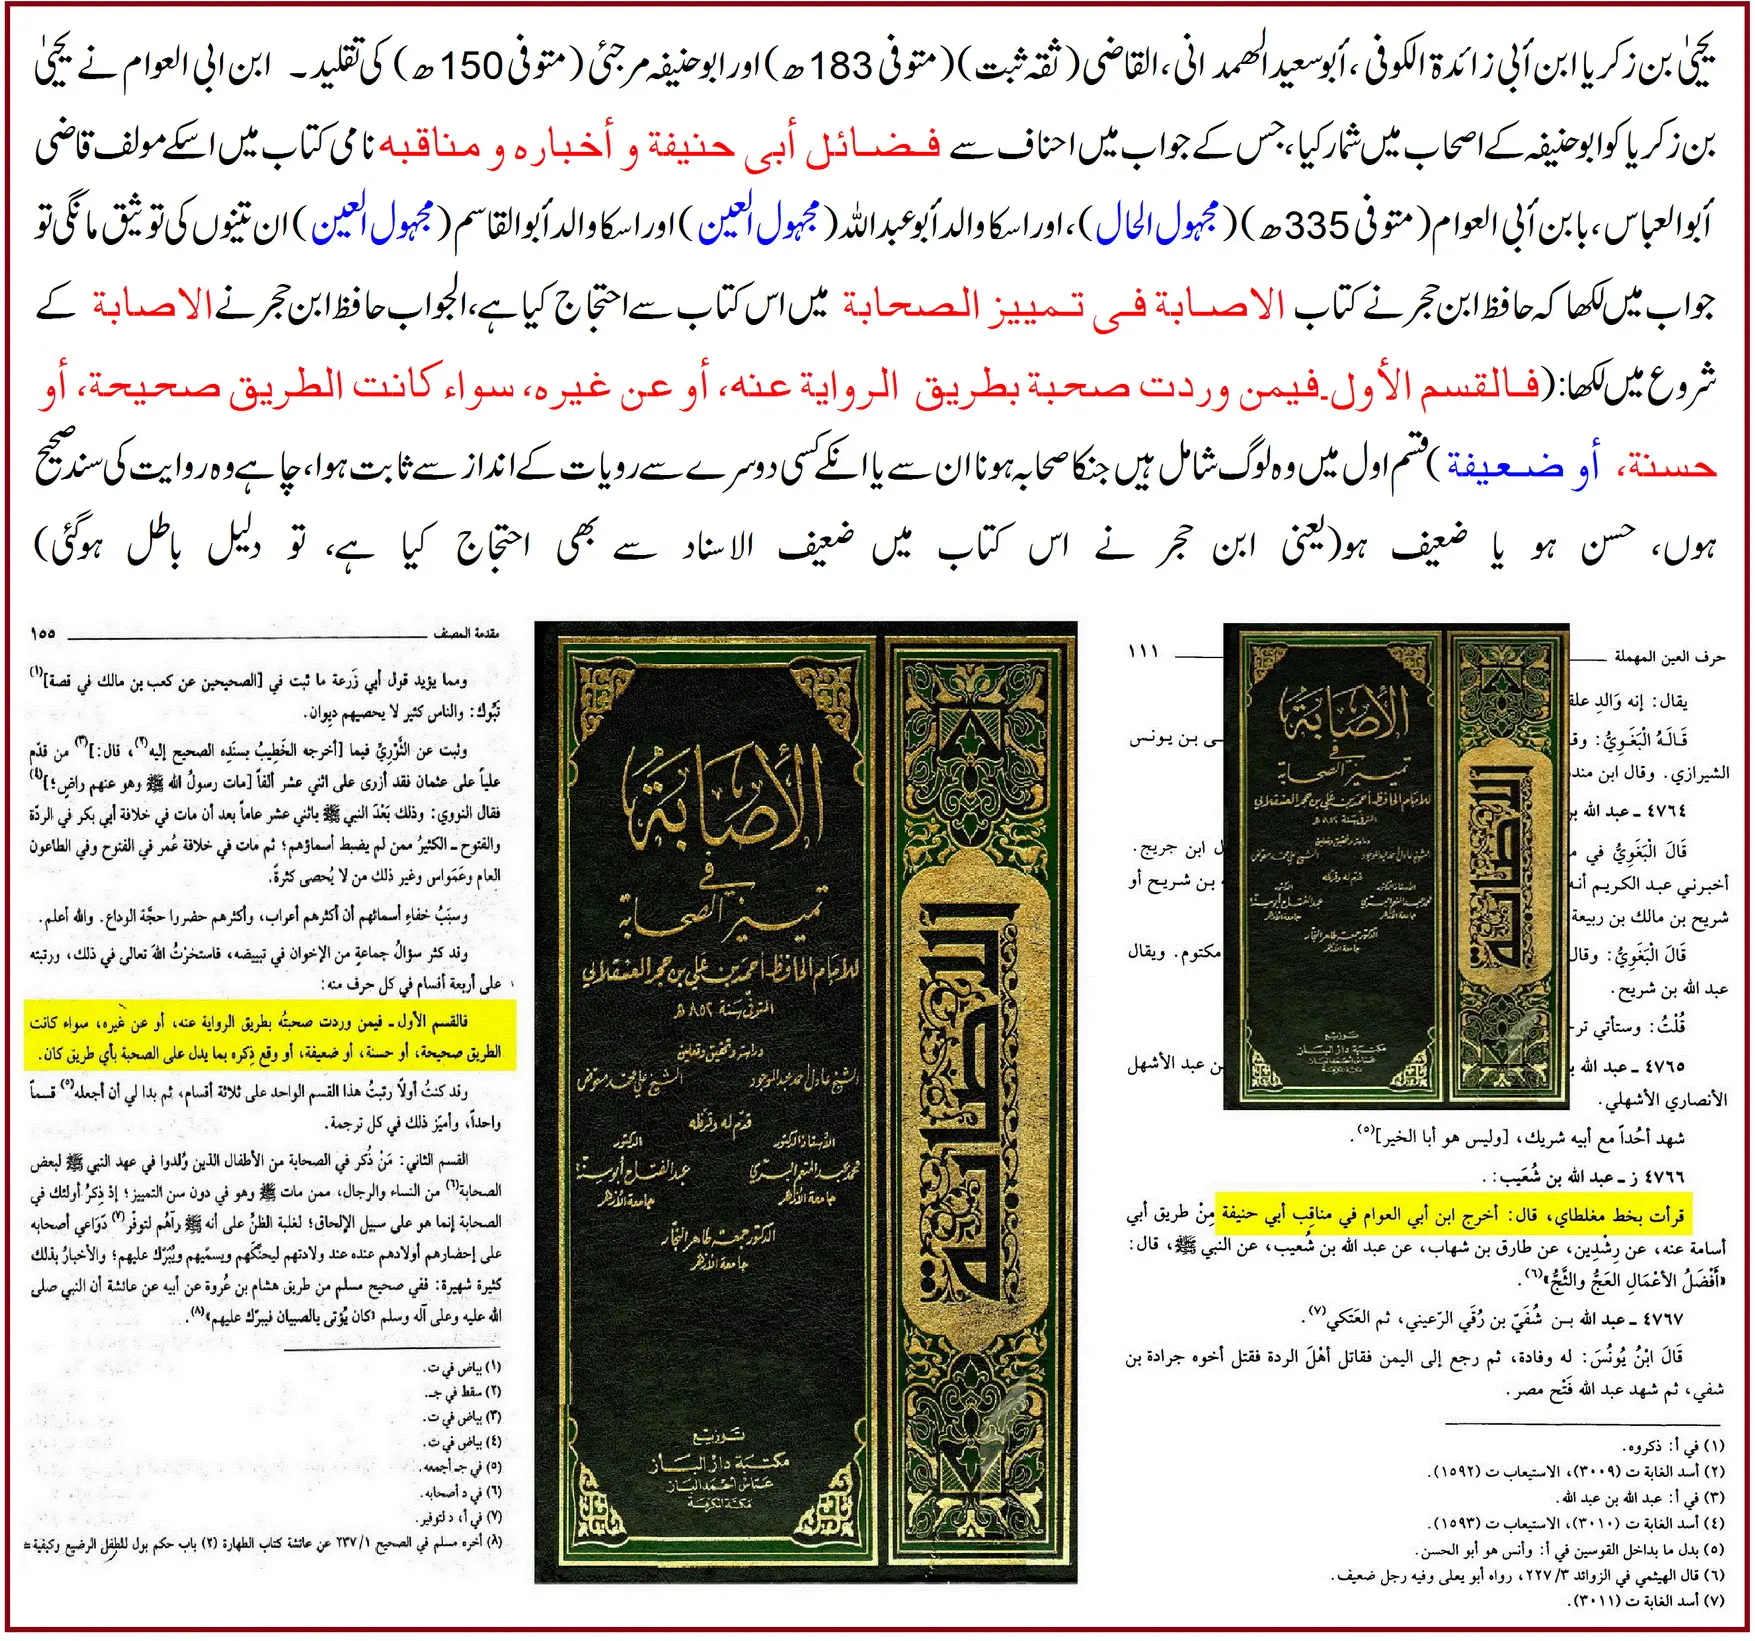 یحییٰ بن زکریا ابن أبی زائدة الکوفی ، أبو سعید الھمدانی، القاضی (ثقہ ثبت) (متوفی 183ھ) اور ابو حنیفہ مرجئی (متوفی 150ھ) کی تقلید۔ ابن ابی العوام نے یحییٰ
بن زکریا کو ابو حنیفہ کے اصحاب میں شمار کیا، جس کے جواب میں احناف سے فضائل أبی حنیفة و أخباره و مناقبه نامی کتاب میں اسکے مولف قاضی
أبو العباس، یا بن أبی العوام (متوفی 335ھ) (مجہول الحال)، اور اسکا والد أبو عبد اللہ (مجہول العین) اور اسکا والد أبو القاسم (مجہول العین) ان تینوں کی توثیق مانگی تو
جواب میں لکھا کہ حافظ ابن حجر نے کتاب الاصابة فی تمییز الصحابة میں اس کتاب سے احتجاج کیا ہے، الجواب حافظ ابن حجر نے الاصابة کے
شروع میں لکھا: (فالقسم الأول۔فیمن وردت صحبة بطریق الروایة عنه، أو عن غیره، سواء کانت الطریق صحیحة، أو
حسنة، أو ضعیفة) قسم اول میں وہ لوگ شامل ہیں جنکا صحابہ ہونا ان سے یا انکے کسی دوسرے سے رویات کے انداز سے ثابت ہوا، چاہے وہ روایت کی سند صحیح
ہوں، حسن ہو یا ضعیف ہو (یعنی ابن حجر نے اس کتاب میں ضعیف الاسناد سے بھی احتجاج کیا ہے، تو دلیل باطل ہوگئی)
حرف العين المهملة ١١١
يقال: إنه وَالد علق
قَالَهُ الْبَغَوِيُّ: وق
ـى بن يونس
الشيرازي. وقال ابن منده
٤٧٦٤ ـ عبد الله بـ
قَالَ الْبَغَوِيُّ في مـ
ل ابن جريج.
أخبرني عبد الكريم أنه
بن شريح أو
شريح بن مالك بن ربيعة
قَالَ الْبَغَوِيُّ: وقال
مكتوم. ويقال
عبد الله بن شريح.
قُلْتُ: وستأتي تر
٤٧٦٥ ـ عبد الله بـ
ن عبد الأشهل
الأنصاري الأشهلي.
شهد أحُداً مع أبيه شريك، [وليس هو أبا الخير]⁽٥⁾.
٤٧٦٦ ز ـ عبد الله بن شُعَيب: .
قرأت بخط مغلطاي، قال: أخرج ابن أبي العوام في مناقِب أبي حنيفة مِنْ طريق أبي
أسامة عنه، عن رِشْدِين، عن طارق بن شهاب، عن عبد الله بن شُعيب، عن النبي ﷺ، قال:
«أَفْضَلُ الأعْمَالِ العَجُّ والثَّجُّ»⁽٦⁾.
٤٧٦٧ ـ عبد الله بـن شُفَيّ بن رُقَي الرّعيني، ثم العَتكي⁽٧⁾.
قَالَ ابْنُ يُونُسَ: له وفادة، ثم رجع إلى اليمن فقاتل أهْلَ الردة فقتل أخوه جرادة بن
شفي، ثم شهد عبد الله فَتْح مصر.
(١) في أ: ذكروه.
(٢) أسد الغابة ت (٣٠٠٩)، الاستيعاب ت (١٥٩٢).
(٣) في أ: عبد الله بن عبد الله.
(٤) أسد الغابة ت (٣٠١٠)، الاستيعاب ت (١٥٩٣).
(٥) بدل ما بداخل القوسين في أ: وأنس هو أبو الحسن.
(٦) قال الهيثمي في الزوائد ٣/ ٢٢٧، رواه أبو يعلى وفيه رجل ضعيف.
(٧) أسد الغابة ت (٣٠١١).
الإصابة
في
تمييز الصحابة
للإمام الحافظ أحمد بن علي بن حجر العسقلاني
المتوفى سنة ٨٥٢ هـ
دراسة وتحقيق وتعليق
الشيخ عادل أحمد عبد الموجود الشيخ علي محمد معوض
قدم له وقرظه
الأستاذ الدكتور الدكتور
محمد عبد المنعم البري عبد الفتاح أبو سنة
جامعة الأزهر جامعة الأزهر
الدكتور جمعة طاهر النجار
جامعة الأزهر
توزيع
مكتبة دار الباز
عباس أحمد الباز
مكة المكرمة
الإصابة
مقدمة المصنف ١٥٥
ومما يؤيد قول أبي زَرعة ما ثبت في [الصحيحين عن كعب بن مالك في قصة]⁽١⁾
تَبُوك: والناس كثير لا يحصيهم ديوان.
وثبت عن الثَّوْرِيِّ فيما [أخرجه الخَطِيبُ بسنده الصحيح إليه⁽٢⁾، قال:]⁽٣⁾ من قدّم
علياً على عثمان فقد أزرى على اثني عشر ألفاً [مات رسولُ الله ﷺ وهو عنهم راضٍ؛]⁽٤⁾
فقال النووي: وذلك بَعْدَ النبي ﷺ باثني عشر عاماً بعد أن مات في خلافة أبي بكر في الردّة
والفتوح ـ الكثيرُ ممن لم يضبط أسماؤهم؛ ثم مَات في خلافة عُمر في الفتوح وفي الطاعون
العام وعَمَواس وغير ذلك من لا يُحصى كثرةً.
وسبَبُ خفاءِ أسمائهم أن أكثرهم أعراب، وأكثرهم حضروا حجَّة الوداع. والله أعلم.
وقد كثر سؤالُ جماعةٍ من الإخوان في تبييضه، فاستخرْتُ الله تعالى في ذلك، ورتبته
على أربعة أقسام في كل حرف منه:
فالقسم الأول ـ فيمن وردت صحبتُه بطريق الرواية عنه، أو عن غيره، سواء كانت
الطريق صحيحة، أو حسنة، أو ضعيفة، أو وقع ذِكره بما يدل على الصحبة بأي طريق كان.
وقد كنتُ أولاً رتبتُ هذا القسم الواحد على ثلاثة أقسام، ثم بدا لي أن أجعله⁽٥⁾ قسماً
واحداً، وأميّز ذلك في كل ترجمة.
القسم الثاني: مَنْ ذُكر في الصحابة من الأطفال الذين وُلدوا في عهد النبي ﷺ لبعض
الصحابة⁽٦⁾ من النساء والرجال، ممن مات ﷺ وهو في دون سن التمييز؛ إذ ذِكرُ أولئك في
الصحابة إنما هو على سبيل الإلحاق؛ لغلبة الظنِّ على أنه ﷺ رآهُم لتوفّر⁽٧⁾ دَوَاعي أصحابه
على إحضارهم أولادهم عنده عند ولادتهم ليحنّكهم ويسمّيهم ويُبَرّك عليهم؛ والأخبارُ بذلك
كثيرة شهيرة: ففي صحيح مسلم من طريق هشام بن عُروة عن أبيه عن عائشة أن النبي صلى
الله عليه وعلى آله وسلم «كان يُؤتى بالصبيان فيبرّك عليهم»⁽٨⁾.
(١) بياض في ت.
(٢) سقط في جـ.
(٣) بياض في ت.
(٤) بياض في ت.
(٥) في جـ أجمعه.
(٦) في د أصحابه.
(٧) في أ، د لتوفير.
(٨) أخره مسلم في الصحيح ١/ ٢٣٧ عن عائشة كتاب الطهارة (٢) باب حكم بول للطفل الرضيع وكيفية=